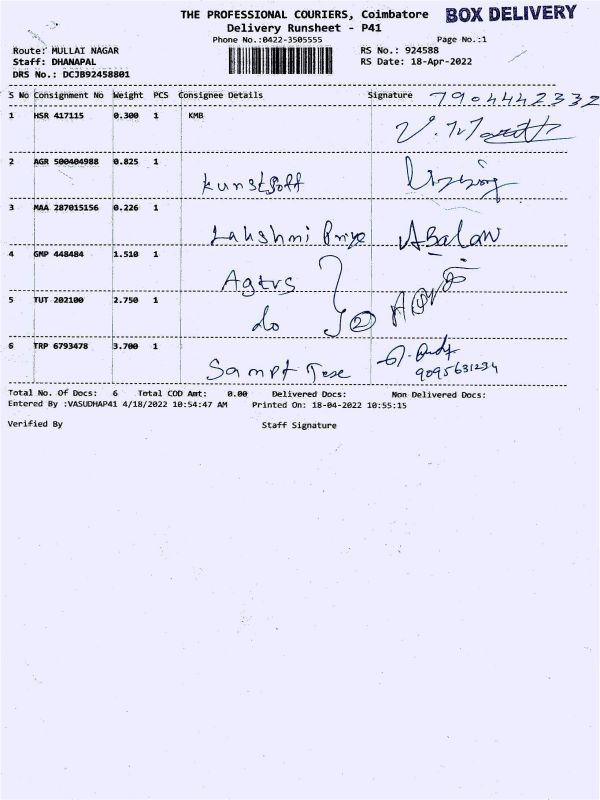 THE PROFESSIONAL COURIERS, Coimbatore BOX DELIVERY
Delivery Runsheet - P41
Phone No.:0422-3505555 Page No.:1
Route: MULLAI NAGAR RS No.: 924588
Staff: DHANAPAL RS Date: 18-Apr-2022
DRS No.: DCJB92458801
S No Consignment No Weight PCS Consignee Details Signature 7904442332
1 HSR 417115 0.300 1 KMB
2 AGR 500404988 0.825 1
kunstsoff
3 MAA 287015156 0.226 1
Lakshmi Priya ABalan
4 GMP 448484 1.510 1
Agtrs
5 TUT 202100 2.750 1
do 2
6 TRP 6793478 3.700 1
9095631234
Total No. Of Docs: 6 Total COD Amt: 0.00 Delivered Docs: Non Delivered Docs:
Entered By :VASUDHAP41 4/18/2022 10:54:47 AM Printed On: 18-04-2022 10:55:15
Verified By Staff Signature